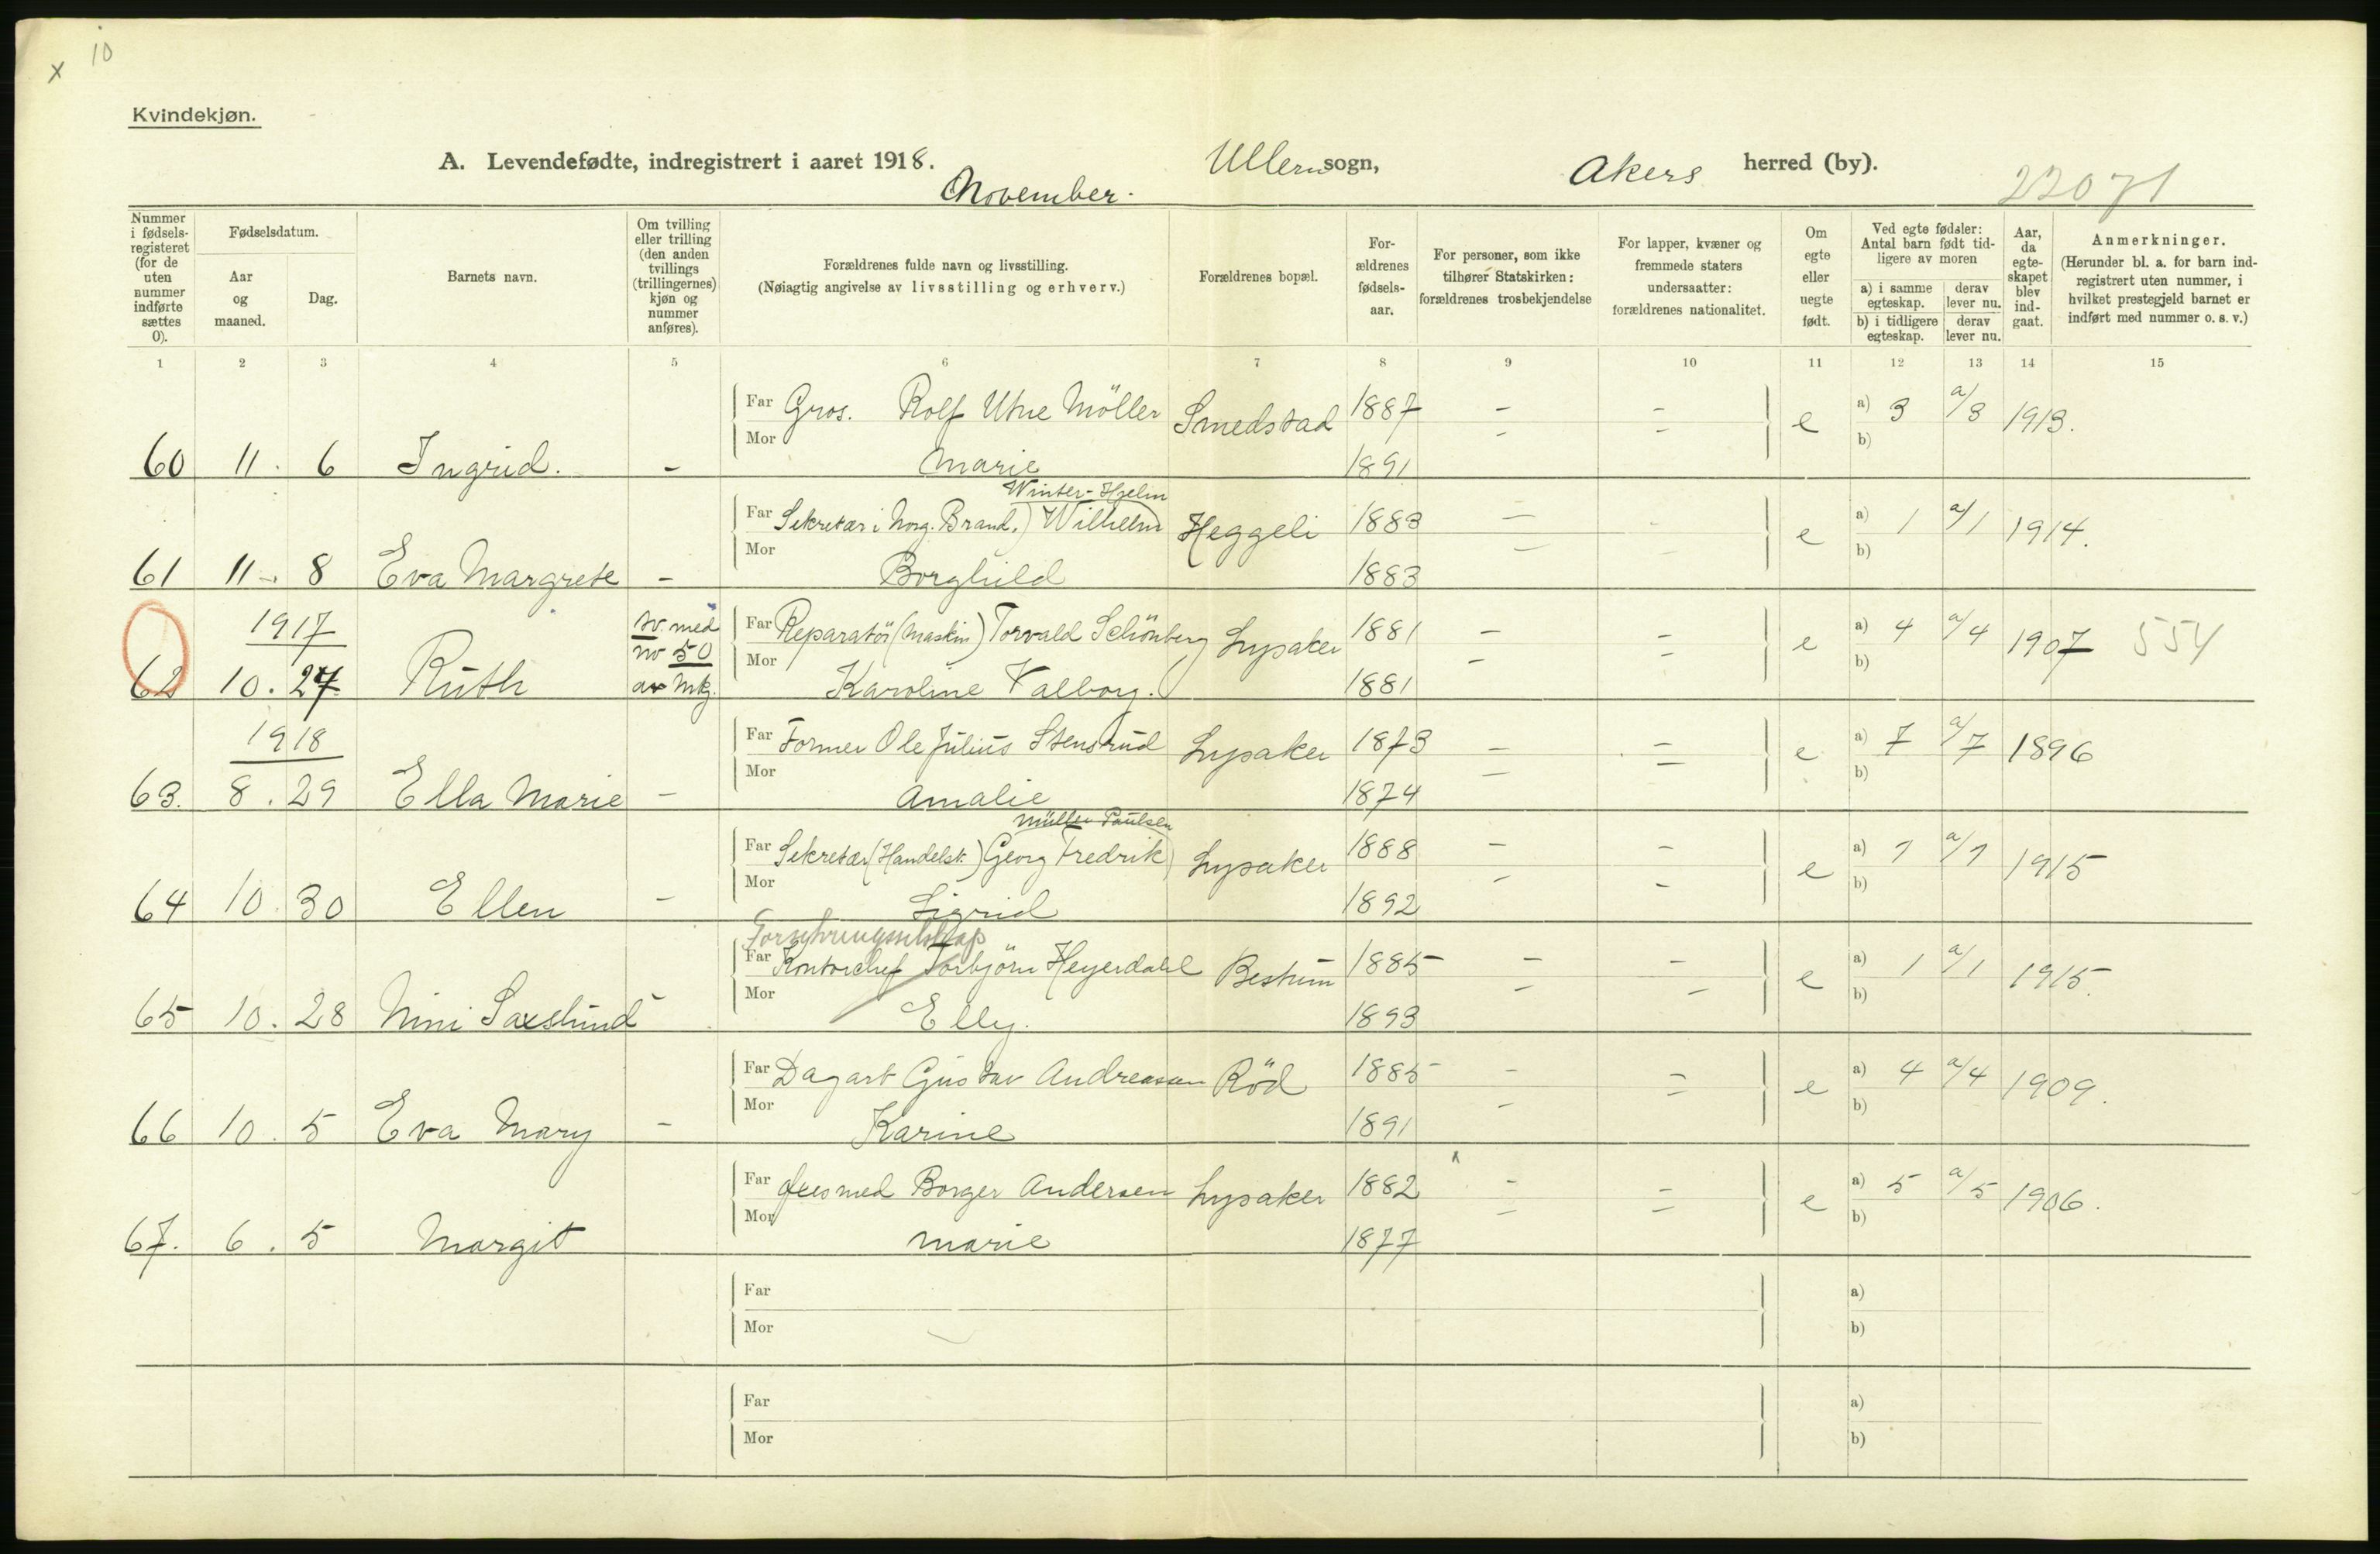 x 10
Kvindekjøn.
A. Levendefødte, indregistrert i aaret 1918. Ullern sogn, Akers herred (by).
November. 22071
Nummer i fødselsregisteret (for de uten nummer indførte sættes 0).
Fødselsdatum.
Aar og maaned.
Dag.
Barnets navn.
Om tvilling eller trilling (den anden tvillings (trillingernes) kjøn og nummer anføres).
Forældrenes fulde navn og livsstilling.
(Nøiagtig angivelse av livsstilling og erhverv.)
Forældrenes bopæl.
Forældrenes fødselsaar.
For personer, som ikke tilhører Statskirken: forældrenes trosbekjendelse
For lapper, kvæner og fremmede staters undersaatter: forældrenes nationalitet.
Om egte eller uegte født.
Ved egte fødsler: Antal barn født tidligere av moren
a) i samme egteskap. derav lever nu.
b) i tidligere egteskap. derav lever nu.
Aar, da egteskapet blev indgaat.
Anmerkninger.
(Herunder bl. a. for barn indregistrert uten nummer, i hvilket prestegjeld barnet er indført med nummer o. s. v.)
1 2 3 4 5 6 7 8 9 10 11 12 13 14 15
Far Gros. Rolf Utne Möller Smedstad 1887 - - e a) 3 a/3 1913.
Mor - - b)
60 11. 6 Ingrid. - Marie 1891
Winter-Hjelm
Far Sekretær i Norg. Brand.) Wilhelm Heggeli 1883 - - e a) 1 a/1 1914.
Mor - - b)
61 11. 8 Eva Margrete - Borghild 1883
1917 tv. med Far Reparatör (Maskin) Torvald Schönberg Lysaker 1881 - - e a) 4 a/4 1907 554
no 50 Mor - - b)
62 10. 27 Ruth av Mkj. Karoline Valborg. 1881
1918 Far Former Ole Julius Stensrud Lysaker 1873 - - e a) 7 a/7 1896
Mor - - b)
63. 8. 29 Ella Marie - Amalie 1874
Müller Paulsen
Far Sekretær (Handelst.) Georg Fredrik Lysaker 1888 - - e a) 1 a/1 1915
Mor - - b)
64 10. 30 Ellen - Sigrid 1892
Forsikringsselskap
Far Kontorchef Torbjörn Heyerdahl Bestum 1885 - - e a) 1 a/1 1915.
Mor - - b)
65 10. 28 Nini Saxslund - Elly. 1893
Far Dagarb Gustav Andreassen Röd 1885 - - e a) 4 a/4 1909.
Mor - - b)
66 10. 5 Eva Mary - Karine 1891
Far Borger Andersen Lysaker 1882 - - e a) 5 a/5 1906.
Mor - - b)
67. 6. 5 Margit Marie 1877
Far a)
Mor b)
Far a)
Mor b)